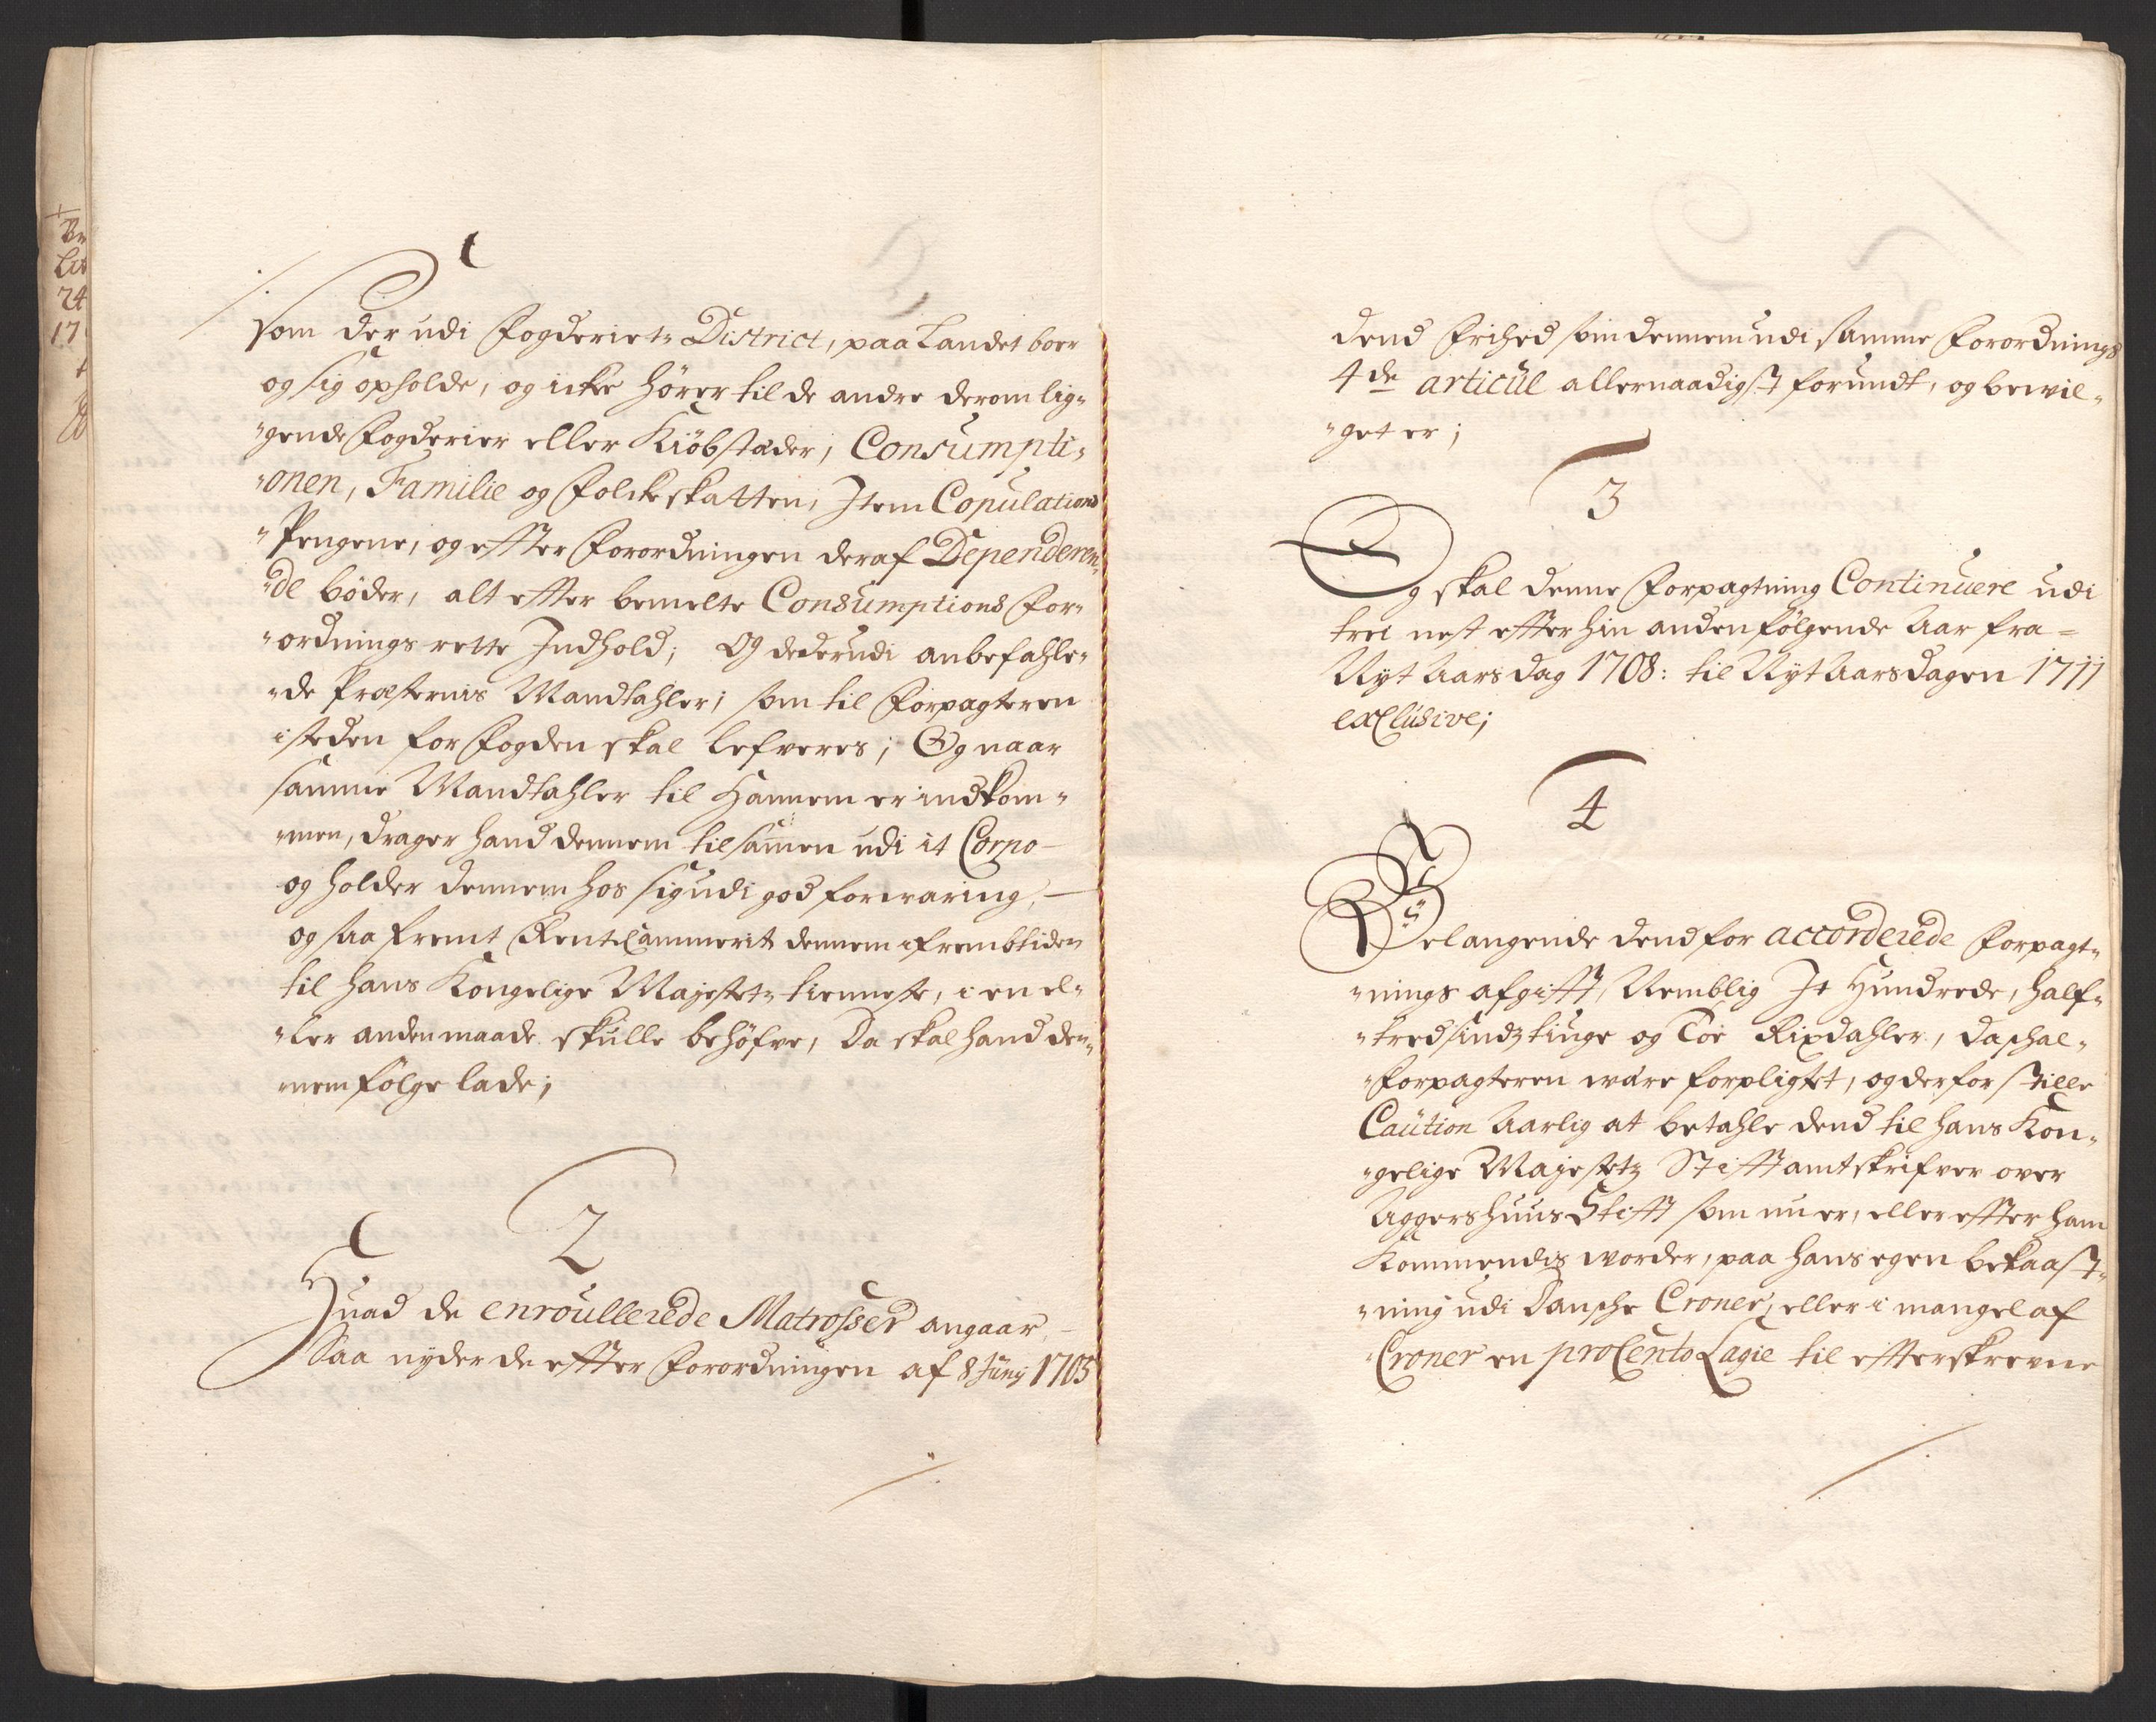 som der udi Fogderietz District, paa Landet boer
og sig opholde, og icke hører til de andre derom lig¬
"gende Fogderier eller Kiöbstæder, Consumpti¬
"onen, Familie og Folckeskatten, Item Copulations
"Pengene, og effter Forordningen deraf Dependeren¬
"de bøder, alt effter bemelte Consumptions For¬
"ordnings rette Indhold; Og de derudi anbefahle¬
"de Præsternis Mandtahler, som til Forpagteren
isteden for Fogden skal lefveres; Og naar
samme Mandtahler til Hannem er indkom¬
"men, drager hand dennem tilsamen udi it Corpo
og holder dennem hos sig udi god forvaring,
og saa fremt RenteCammerit dennem i frembtiden
til hans Kongelige Majestetz tienneste, i en el¬
"ler anden maade skulle behöfve, Da skal hand den¬
"nem fölge lade;
2
Huad de enroullerede Matrosser angaar,
Saa nyder de effter Forordningen af 8 Junij 1705
dend Frihed som dennem udi samme Forordnings
4de articul allernaadigst forundt, og bevil¬
"get er;
3
Og skal denne Forpagtning Continuere udi
tree nest effter hin anden fölgende Aar fra
Nyt Aarsdag 1708: til Nyt Aarsdagen 1711
exclusive;
4
Belangende dend for accorderede Forpagt¬
"nings afgifft, Nemblig It Hundrede, half¬
"tredsindztiuge og Toe Rixdahler, da skal
Forpagteren være forpligtet, og derfor stille
Caution Aarlig at betahle dend til hans Kon¬
"gelige Majestetz Stifftamtskrifver over
Aggershuus Stifft som nu er, eller effter ham
Kommendis vorder, paa hans egen bekaast¬
"ning udi Danske Croner, eller i mangel af
Croner en proCento Lagie til effterskrevne